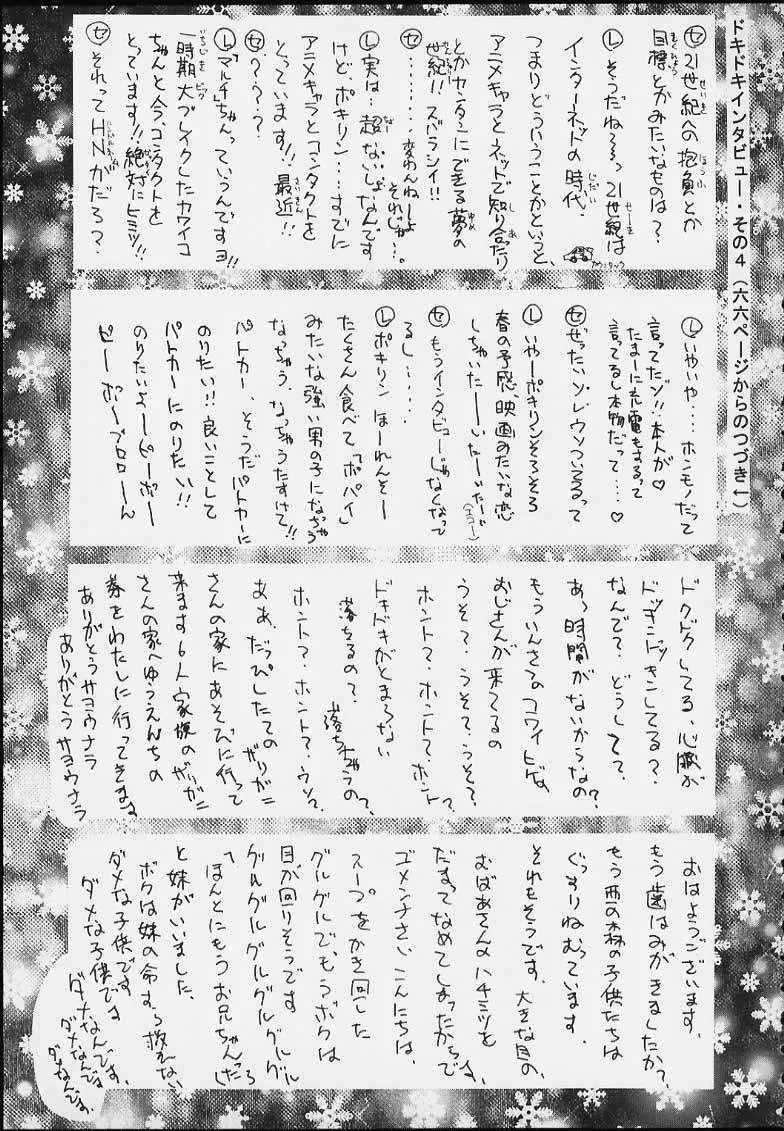 ドキドキインタビュー・その4(六六ページからのつづき↓)
セ 21世紀への抱負とか
目標とかみたいなものは?
L そうだね〜〜っ 21世紀は
インターネットの時代、
つまりどういうことかというと、
アニメキャラとネットで知り合ったり
とかカンタンにできる夢の
世紀!! ズバラシイ!!
セ ………変わんねーよ
それじゃ…。
L 実は…超ないしょなんです
けど ポキリン…すでに
アニメキャラとコンタクトを
とっています!! 最近!!
セ ????
L 「マルチ」ちゃんっていうんですョ!!
一時期大ブレイクしたカワイコ
ちゃんと今、コンタクトを
とっています!!絶対にヒミツ!!
セ それってHNがだろ?
L いやいや…ホンモノだって
言ってたゾ!!本人が♡
たまーに充電もするって
言ってるし本物だって…♡
セ ぜったいソレウソついてるって
L いやーポキリンそろそろ
春の予感、映画みたいな恋
しちゃいたーーいなーいなーい
(エコー)
セ もうインタビューじゃなくなって
るし……。
L ポキリン ほーれんそー
たくさん食べて「ポパイ」
みたいな強い男の子になっちゃう
なっちゃう、なっちゃうたすけて!!
パトカー、そうだパトカーに
のりたい!!良いことして
パトカーにのりたい!!
のりたいよーピーポー
ピーポーブロローん
ドクドクしてる、心臓が
ドッキンドッキンしてる?
なんで?どうして?
あっ時間がないからなの?
もういんさつのコワイヒゲの
おじさんが来てるの
うそ?うそ?うそ?
ホント?ホント?ホント?
ドキドキがとまらない
落ちるの?落ちちゃうの?
ホント?ホント?ウソ?
ああ、だっぴしたてのザリガニ
さんの家にあそびに行って
来ます6人家族のザリガニ
さんの家へゆうえんちの
券をわたしに行ってきます
ありがとうサヨウナラ
ありがとうサヨウナラ
おはようございます、
もう歯はみがきましたか?
もう西の森の子供たちは
ぐっすりねむっています、
それもそうです、大きな目の、
おばあさんのハチミツを
だまってなめてしまったからです、
ゴメンナさい、こんにちは、
スープをかき回した
グルグルでもうボクは
目が回りそうです
グルグルグルグルグルグル
「ほんとにもうお兄ちゃんたら」
と妹がいいました、
ボクは妹の命すら救えない
ダメな子供です
ダメな子供です
ダメなんです、
ダメなんです、
ダメなんです、